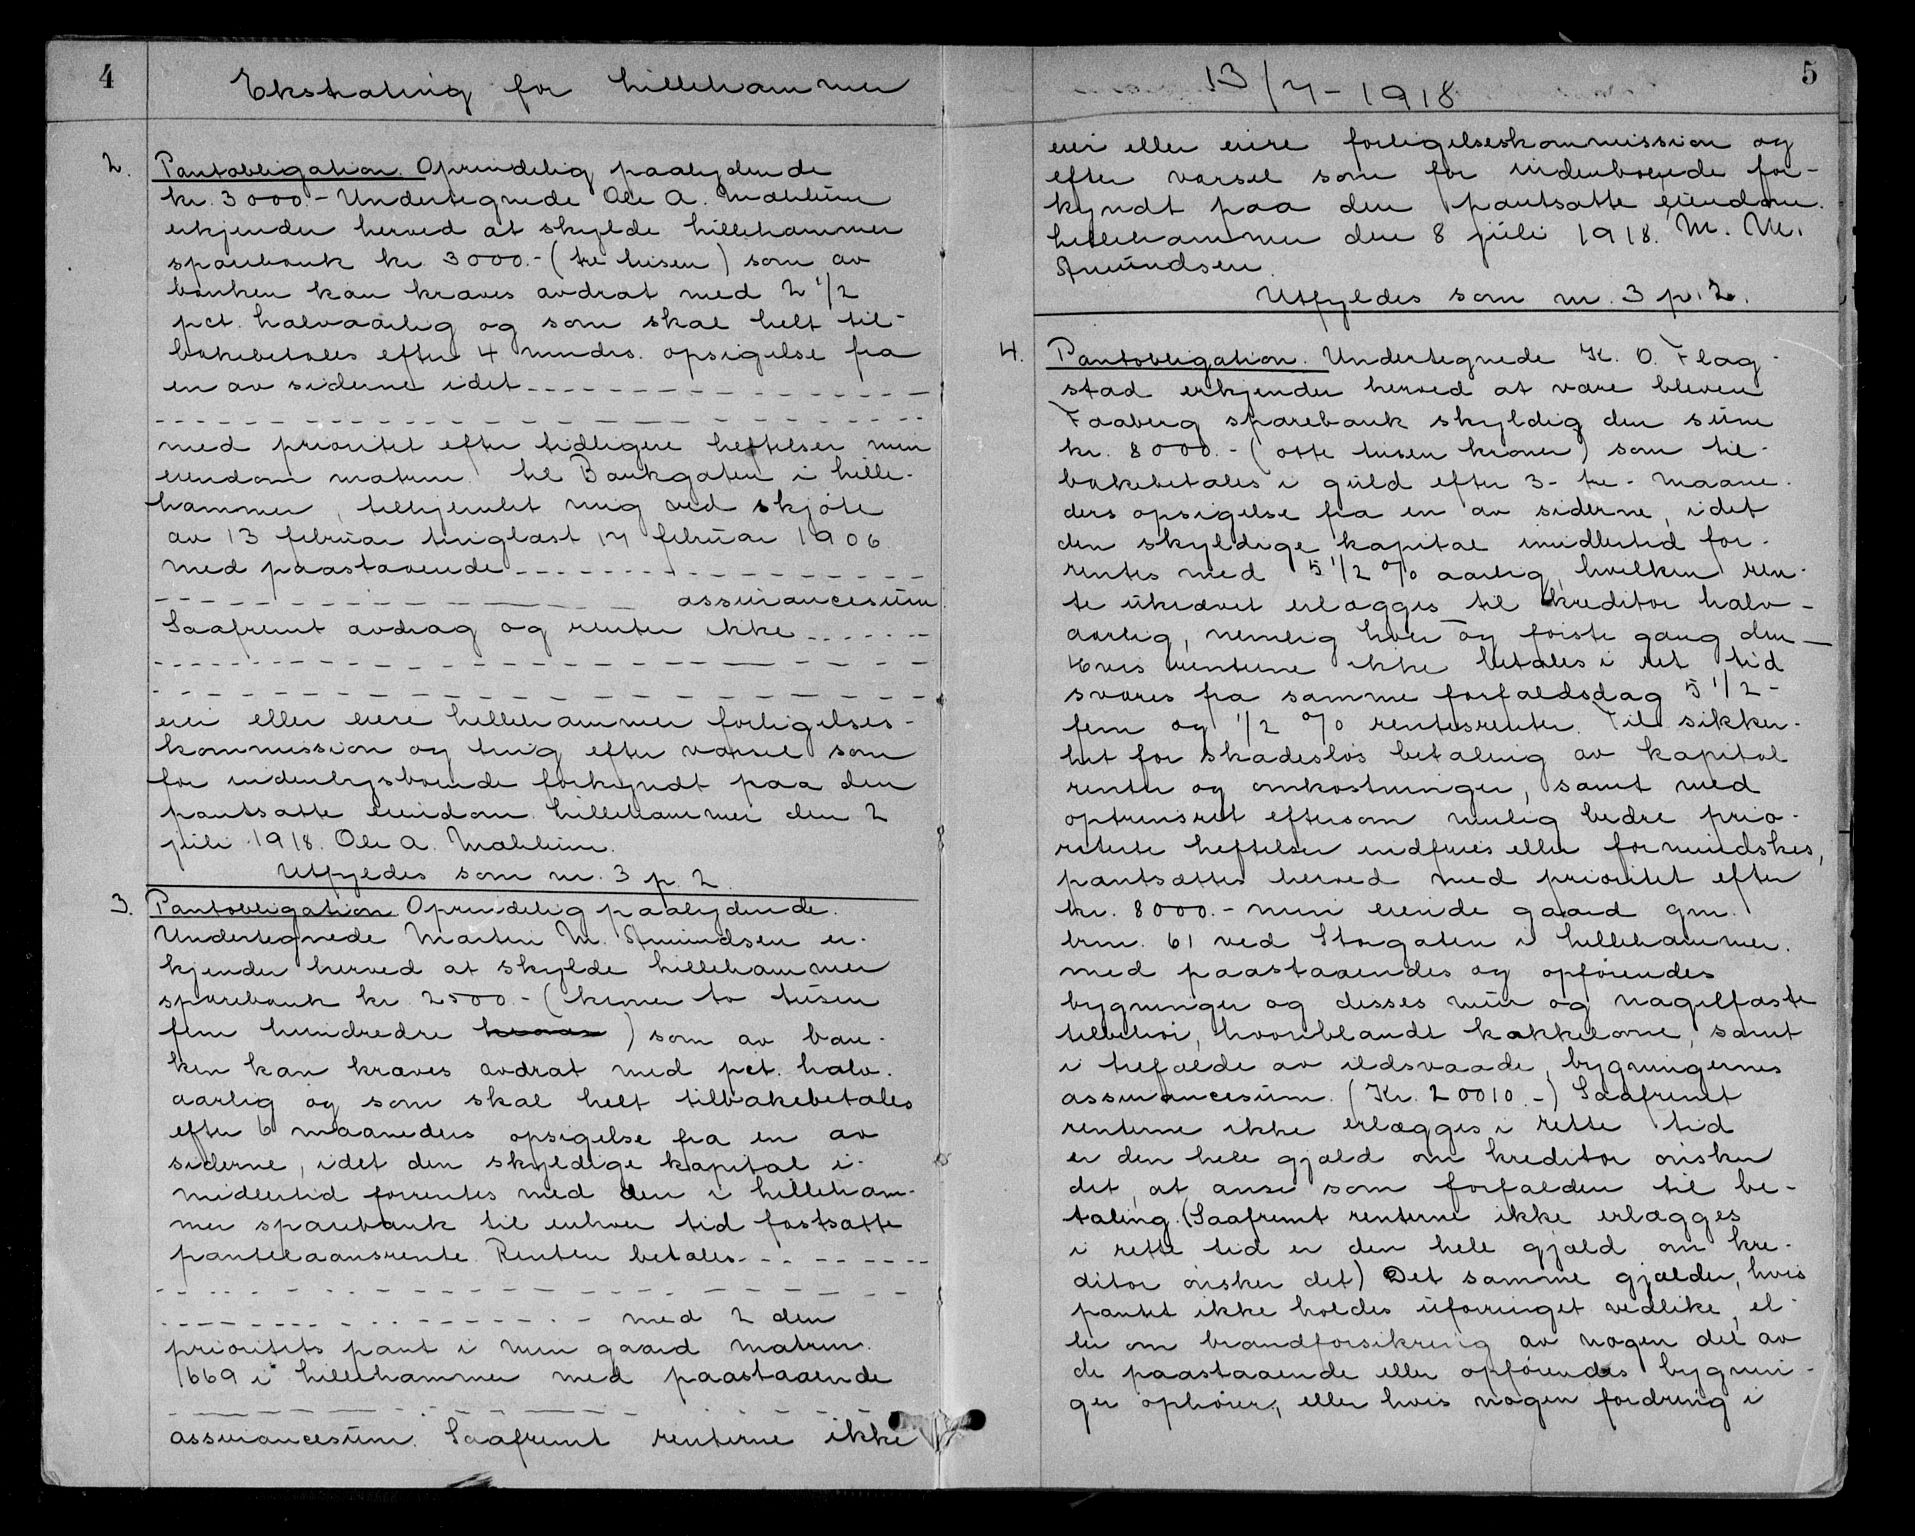 4
Ekstrating for Lillehammer
2. Pantobligation. Oprindelig paalydende
kr. 3000.- Undertegnede Ole A. Mæhlum
erkjender herved at skylde Lillehammer
sparebank kr. 3000.- (tre tusen) som av
banken kan kræves avdrat med 2 1/2
pct. halvaarlig og som skal helt til-
bakebetales efter 4 mndrs. opsigelse fra
en av siderne idet
med prioritet efter tidligere heftelser min
eiendom matrnr. til Bankgaten i Lille-
hammer, tilhjemlet mig ved skjøte
av 13 februar tinglæst 17 februar 1906
med paastaaende
assurancesum.
Saafremt avdrag og renter ikke
eier eller eiere Lillehammer forligelses-
kommission og ting efter varsel som
for indenbysboende forkyndt paa den
pantsatte eiendom. Lillehammer den 2
juli 1918. Ole A. Mæhlum.
Utfyldes som nr. 3 p. 2.
3. Pantobligation Oprindelig paalydende.
Undertegnede Martin M. Amundsen er-
kjender herved at skylde Lillehammer
sparebank kr. 2500.- (kroner to tusen
fem hundredre kroner) som av ban-
ken kan kræves avdrat med pct. halv-
aarlig og som skal helt tilbakebetales
efter 6 maaneders opsigelse fra en av
siderne, idet den skyldige kapital i-
midlertid forrentes med den i Lilleham-
mer sparebank til enhver tid fastsatte
pantelaansrente. Renten betales
med 2 den
prioritets pant i min gaard matrnr.
669 i Lillehammer med paastaaende
assurancesum. Saafremt renterne ikke
13/7-1918
5
eier eller eiere forligelseskommission og
efter varsel som for indenboende for-
kyndt paa den pantsatte eiendom.
Lillehammer den 8 juli 1918. M. M.
Amundsen.
Utfyldes som nr. 3 p. 2.
4. Pantobligation. Undertegnede K. O. Flag-
stad erkjender herved at være bleven
Faaberg sparebank skyldig den sum
kr. 8000.- (otte tusen kroner) som til-
bakebetales i guld efter 3- tre- maane-
ders opsigelse fra en av siderne, idet
den skyldige kapital imidlertid for-
rentes med 5 1/2 % aarlig, hvilken ren-
te ukrævet erlægges til kreditor halv-
aarlig, nemlig hver og første gang den
Hvis renterne ikke betales i ret tid
svares fra samme forfaldsdag 5 1/2 -
fem og 1/2 % rentesrenter. Til sikker-
het for skadesløs betaling av kapital
renter og omkostninger, samt med
optrinsret eftersom mulig bedre prio-
riterte heftelser indfries eller formindskes,
pantsættes herved med prioritet efter
kr. 8000.- min eiende gaard gnr.
brnr. 61 ved Storgaten i Lillehammer.
med paastaaendes og opførendes
bygninger og disses mur og nagelfaste
tilbehør, hvoriblandt kakkelovne, samt
i tilfælde av ildsvaade, bygningernes
assurancesum. (Kr. 20010.-) Saafremt
renterne ikke erlægges i rette tid
er den hele gjæld om kreditor ønsker
det, at anse som forfalden til be-
taling. (Saafremt renterne ikke erlægges
i rette tid er den hele gjæld om kre-
ditor ønsker det) Det samme gjælder, hvis
pantet ikke holdes uforringet vedlike, el-
ler om brandforsikring av nogen del av
de paastaaende eller opførendes bygnin-
ger ophører, eller hvis nogen fordring i